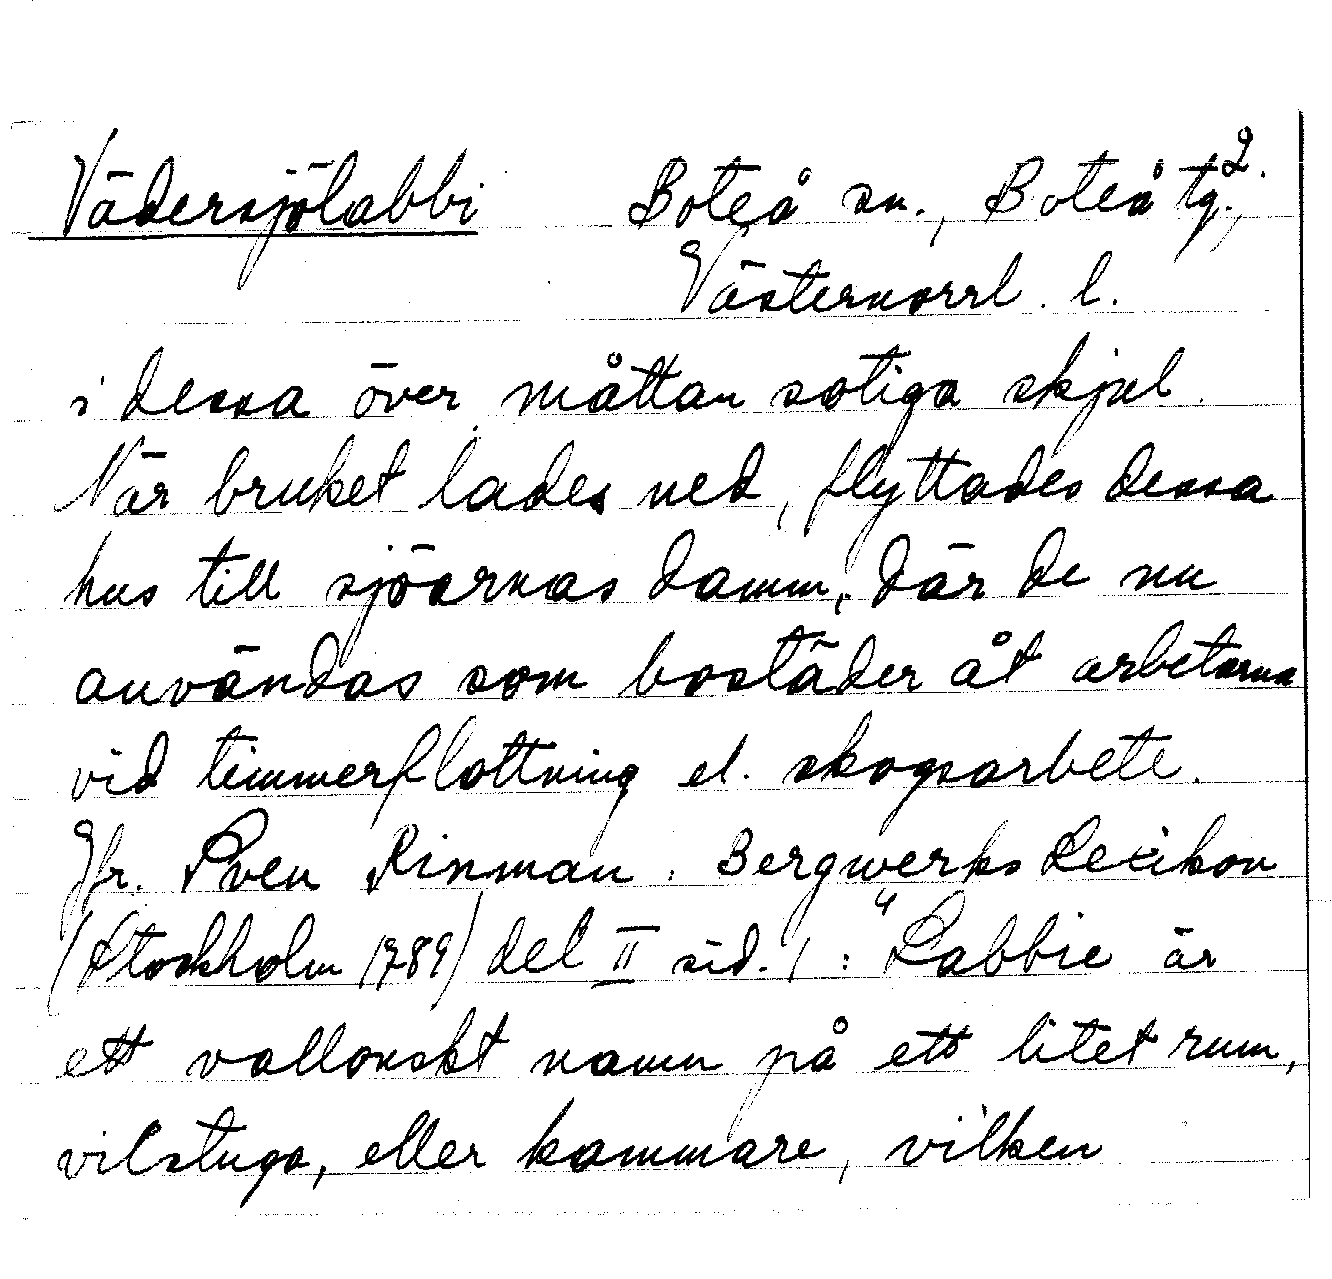 2.
Vädersjölabbi Boteå sn., Boteå tg.,
Västernorrl. l.
i dessa över måttan sotiga skjul.
När bruket lades ned, flyttades dessa
hus till sjöarnas damm, där de nu
användas som bostäder åt arbetarna
vid timmerflottning el. skogsarbete.
Jfr. Sven Rinman. Bergwerks Lexikon
(Stockholm 1789) del II sid. 1: "Labbie är
ett vallonskt namn på ett litet rum,
vilstuga, eller kammare, vilken